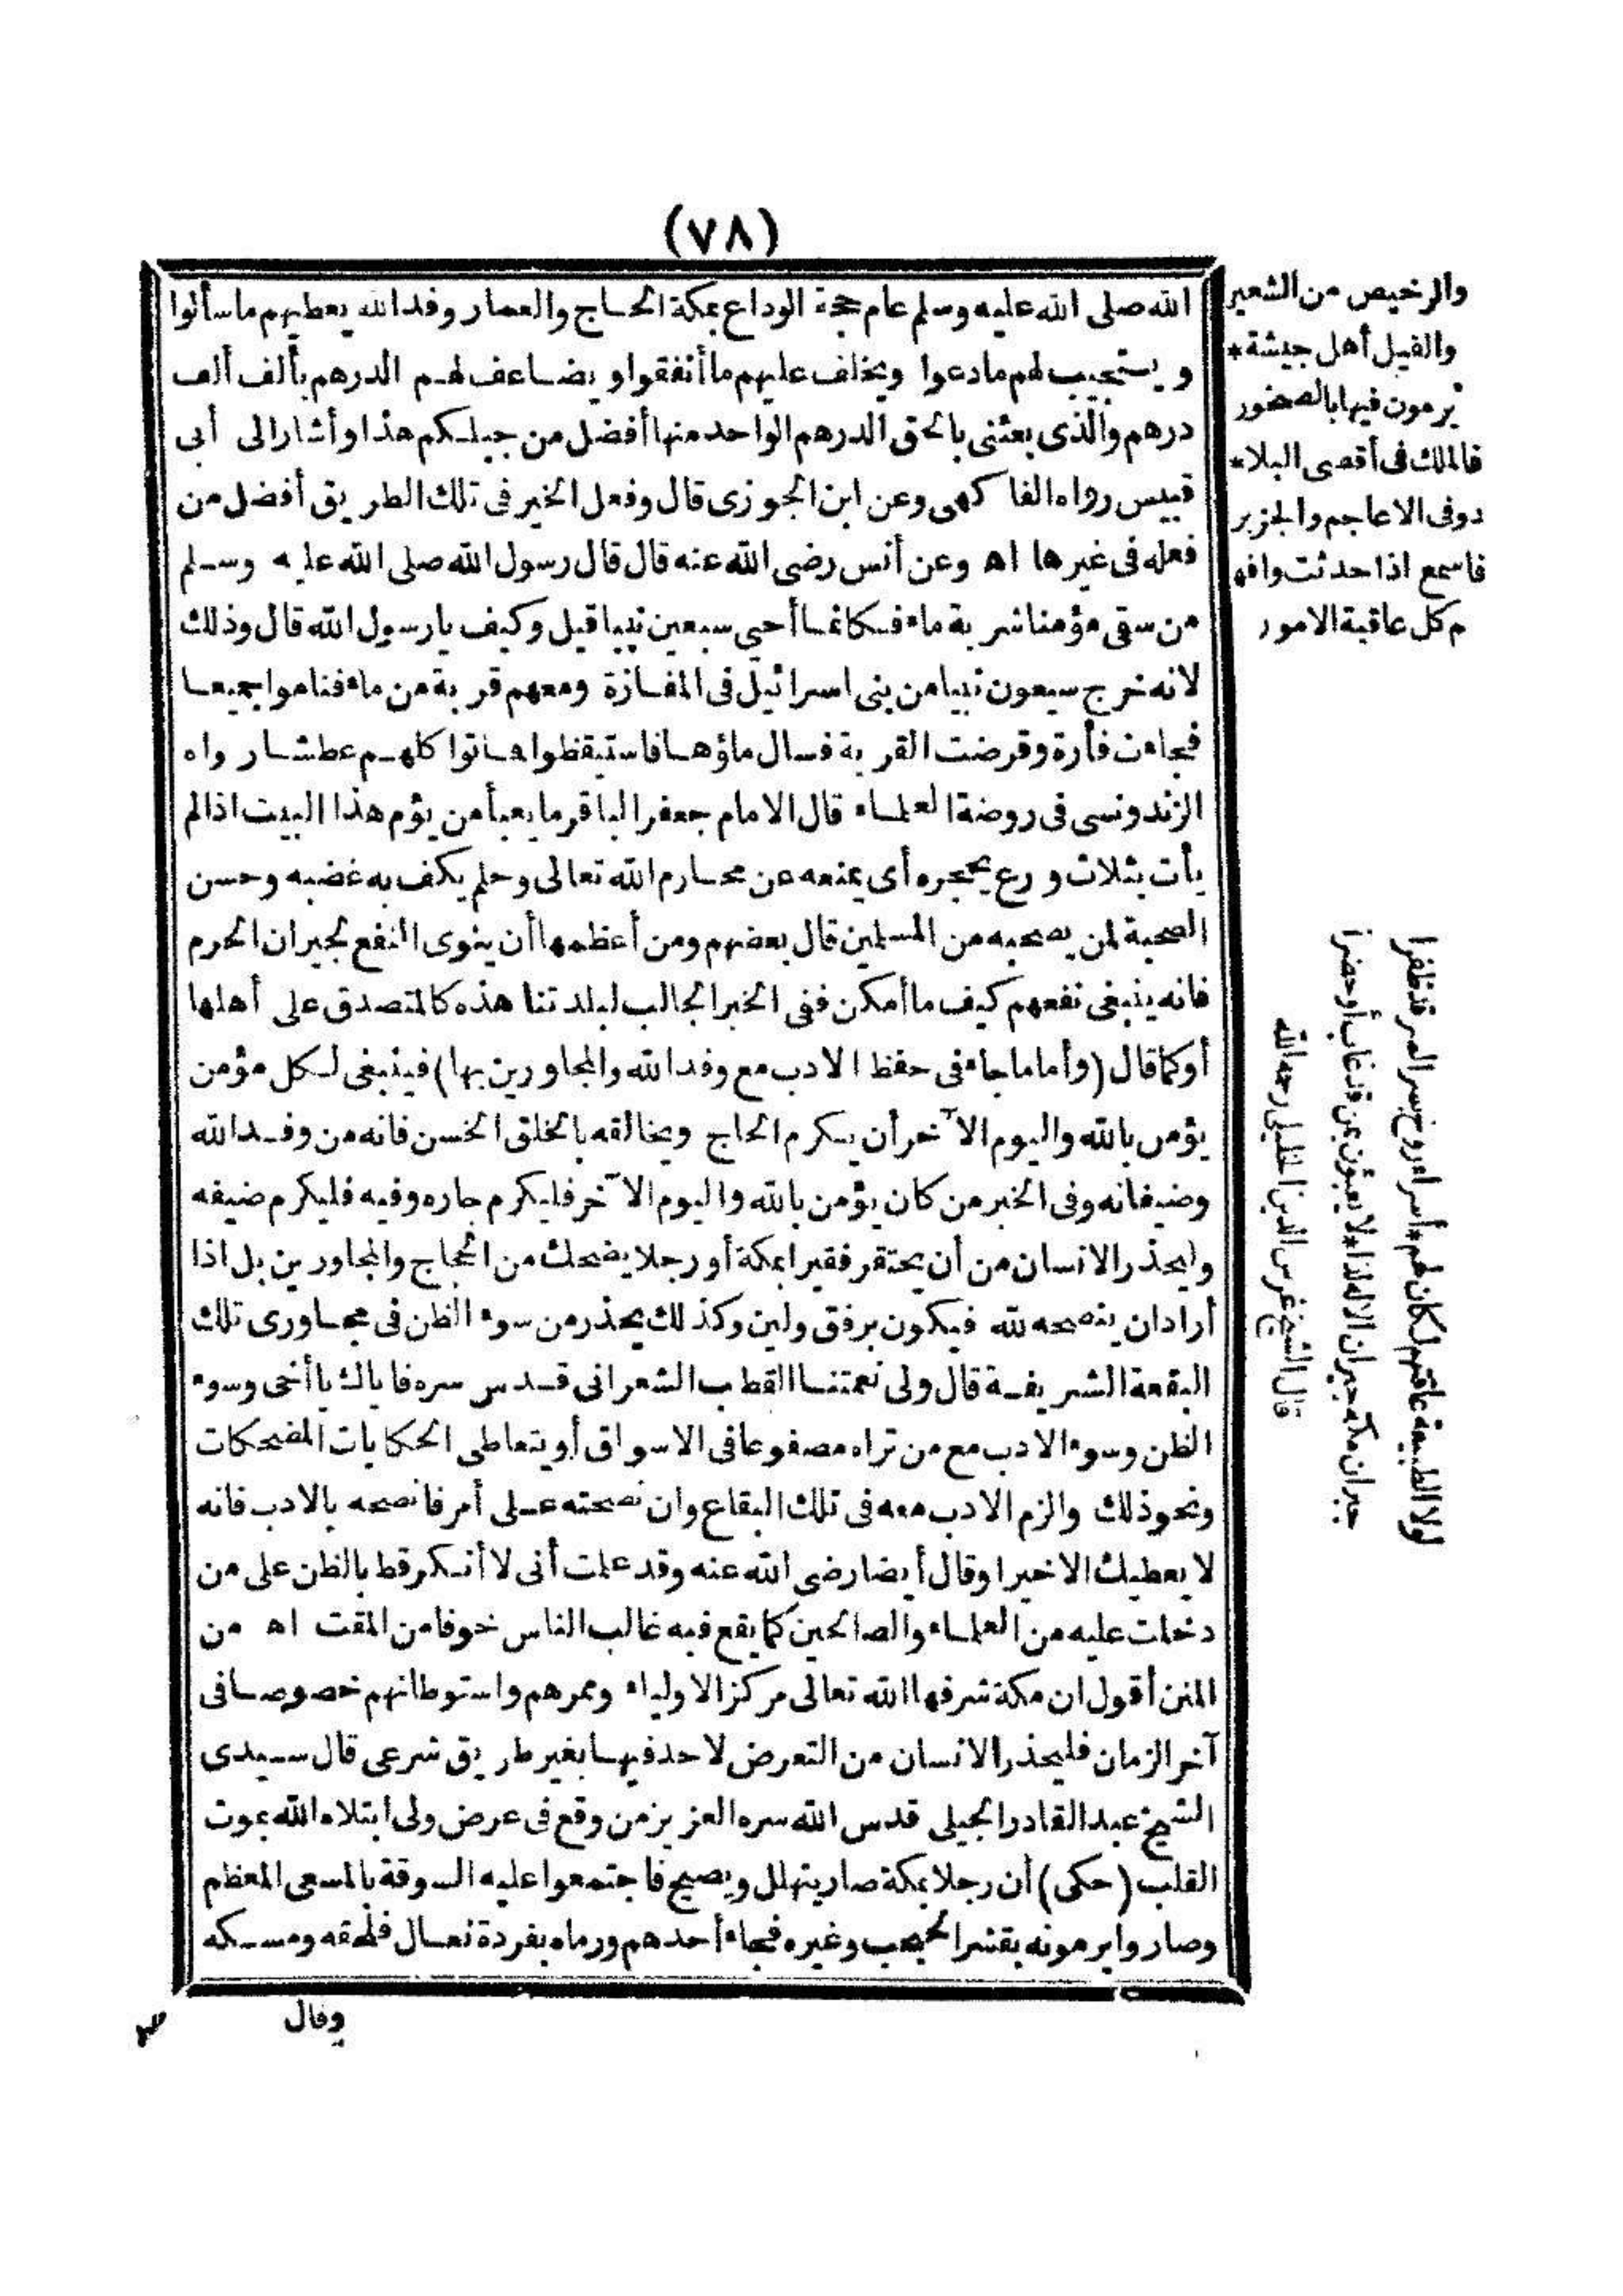 (٧٨)
الله صلى الله عليه وسلم عام حجة الوداع بمكة الحاج والعمار وفد الله يعطيهم ما سألوا
ويستجيب لهم ما دعوا ويخلف عليهم ما أنفقوا ويضاعف لهم الدرهم بألف ألف
درهم والذى بعثنى بالحق الدرهم الواحد منها أفضل من جبلكم هذا وأشار الى أبى
قبيس رواه الفاكهى وعن ابن الجوزى قال وفعل الخير فى تلك الطريق أفضل من
فعله فى غيرها اه وعن أنس رضى الله عنه قال قال رسول الله صلى الله عليه وسلم
من سقى مؤمنا شربة ماء فكانما أحيى سبعين نبيا قيل وكيف يا رسول الله قال وذلك
لانه خرج سبعون نبيا من بنى اسرائيل فى المفازة ومعهم قربة من ماء فناموا جميعا
فجاءت فأرة وقرضت القربة فسال ماؤها فاستيقظوا فماتوا كلهم عطشا رواه
الزندونسى فى روضة العلماء قال الامام جعفر الباقر ما يعبأ من يؤم هذا البيت اذا لم
يأت بثلاث ورع يحجره أى يمنعه عن محارم الله تعالى وحلم يكف به غضبه وحسن
الصحبة لمن يصحبه من المسلمين قال بعضهم ومن أعظمها أن ينوى النفع لجيران الحرم
فانه ينبغى نفعهم كيف ما أمكن ففى الخبر الجالب لبلدتنا هذه كالمتصدق على أهلها
أو كما قال (وأما ما جاء فى حفظ الادب مع وفد الله والمجاورين بها) فينبغى لكل مؤمن
يؤمن بالله واليوم الآخر أن يكرم الحاج ويخالقه بالخلق الحسن فانه من وفد الله
وضيفانه وفى الخبر من كان يؤمن بالله واليوم الآخر فليكرم جاره وفيه فليكرم ضيفه
وليحذر الانسان من أن يحتقر فقيرا بمكة أو رجلا يضحك من الحجاج والمجاورين بل اذا
أراد ان ينصحه لله فيكون برفق ولين وكذلك يحذر من سوء الظن فى مجاورى تلك
البقعة الشريفة قال ولى نعمتنا القطب الشعرانى قدس سره فاياك يا أخى وسوء
الظن وسوء الادب مع من تراه مصفوعا فى الاسواق أو يتعاطى الحكايات المضحكات
ونحو ذلك والزم الادب معه فى تلك البقاع وان نصحته على أمر فانصحه بالادب فانه
لا يعطيك الا خيرا وقال أيضا رضى الله عنه وقد علمت أنى لا أنكر قط بالظن على من
دخلت عليه من العلماء والصالحين كما يقع فيه غالب الناس خوفا من المقت اه من
المنن أقول ان مكة شرفها الله تعالى مركز الاولياء وممرهم واستوطانهم خصوصا فى
آخر الزمان فليحذر الانسان من التعرض لاحد فيها بغير طريق شرعى قال سيدى
الشيخ عبد القادر الجيلى قدس الله سره العزيز من وقع فى عرض ولى ابتلاه الله بموت
القلب (حكى) أن رجلا بمكة صار يتهلل ويصيح فاجتمعوا عليه السوقة بالمسعى المعظم
وصاروا يرمونه بقشر الحبحب وغيره فجاء أحدهم ورماه بفردة نعال فلحقه ومسكه
وقال
والرخيص من الشعير
والفيل أهل جيشه *
يرمون فيها بالصخور
فالملك فى أقصى البلاء *
دوفى الاعاجم والجزير
فاسمع اذا حدثت وافه
م كل عاقبة الامور
قال الشيخ غرس الدين الخليلى رحمه الله
جيران مكة جيران الاله لذا * لا يعبؤن بمن قد غاب أو حضرا
لولا الطبيعة عاقتهم لكان لهم * أسراء روح بسر السر قد ظفرا